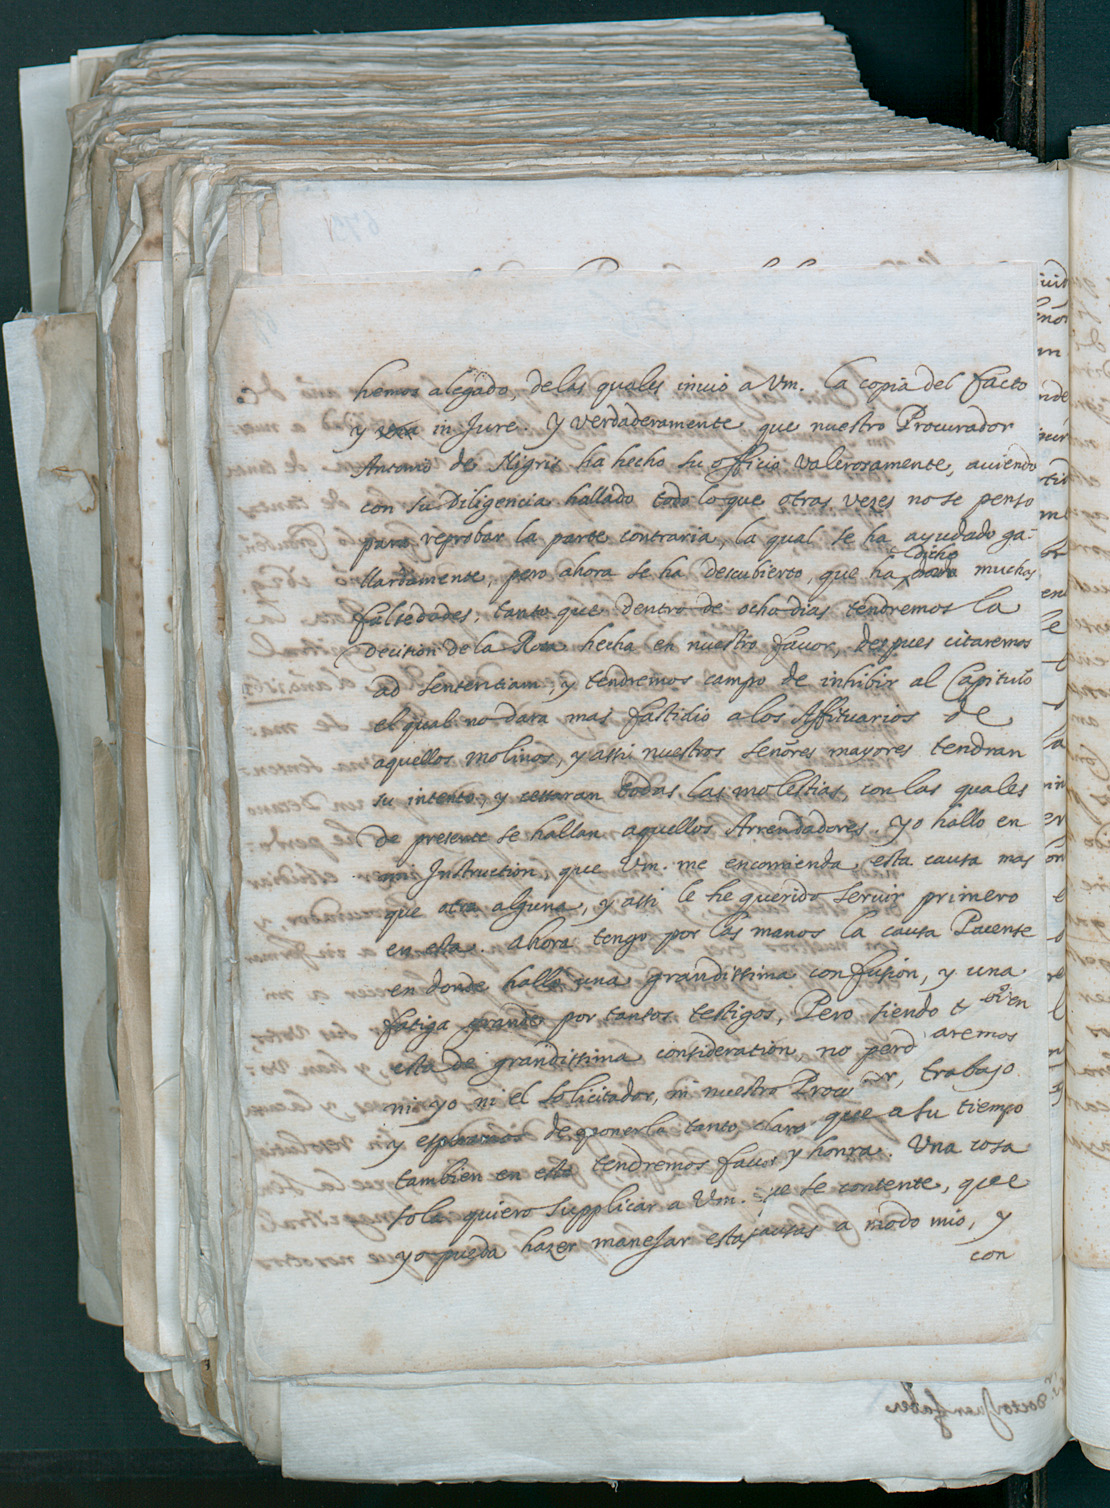 hemos alegado, de las quales inuio a Vm. la copia del facto
y in Jure. Y verdaderamente que nuestro Procurador
Antonio de Nigris ha hecho su officio valerosamente, auiendo
con su Diligencia hallado todo lo que otras vezes no se penso
para reprobar la parte contraria, la qual se ha ayudado ga-
llardamente, pero ahora se ha descubierto, que ha dicho muchas
falsedades; tanto que dentro de ocho dias tendremos la
Decision de la Rota hecha en nuestro fauor, despues citaremos
ad sententiam, y tendremos campo de inhibir al Capitulo
el qual no dara mas fastidio a los Affituarios de
aquellos molinos, y assi nuestros señores mayores tendran
su intento, y cessaran todas las molestias, con las quales
de presente se hallan aquellos Arrendadores. Yo hallo en
mi Instruction, que Vm. me encomienda esta causa mas
que otra alguna, y assi le he querido seruir primero
en esta. Ahora tengo por las manos la causa Pacense
en donde hallo una grandissima confusion, y una
fatiga grande por tantos testigos, Pero siendo tbien
esta de grandissima consideration no perdaremos
ni yo ni el solicitador, ni nuestro Procur, trabajo
y esperamos de ponerla tanto clara que a su tiempo
tambien en esta tendremos fauor y honra. Una cosa
sola quiero supplicar a Vm. que se contente, que
yo pueda hazer manejar estas causas a modo mio, y
con
Doctor Juan faber